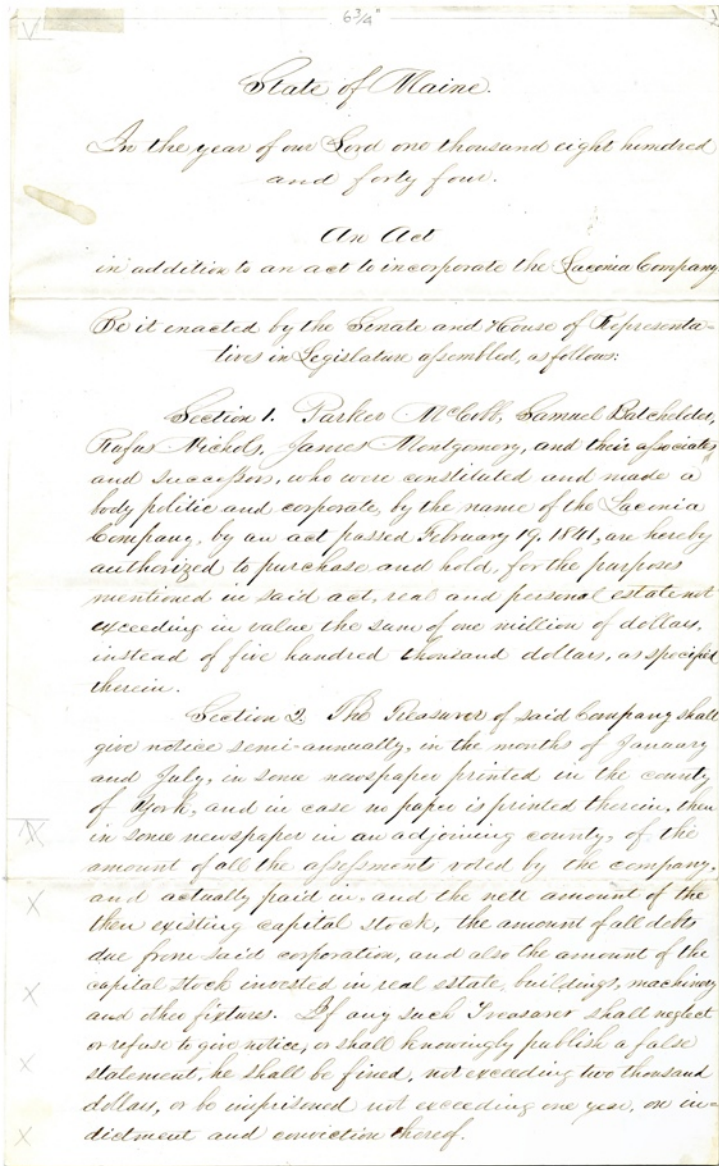 6 3/4"
State of Maine.
In the year of our Lord one thousand eight hundred
and forty four.
An Act
in addition to an act to incorporate the Laconia Company.
Be it enacted by the Senate and House of Representa-
tives in Legislature assembled, as follows:
Section 1. Parker McCobb, Samuel Batchelder,
Rufus Nichols, James Montgomery, and their associates
and successors, who were constituted and made a
body politic and corporate, by the name of the Laconia
Company, by an act passed February 19. 1841, are hereby
authorized to purchase and hold, for the purposes
mentioned in said act, real and personal estate not
exceeding in value the sum of one million of dollars,
instead of five hundred thousand dollars, as specified
therein.
Section 2. The Treasurer of said Company shall
give notice semi-annually, in the months of January
and July, in some newspaper printed in the county
of York, and in case no paper is printed therein, then
in some newspaper in an adjoining county, of the
amount of all the assessments voted by the company,
and actually paid in, and the nett amount of the
then existing capital stock, the amount of all debts
due from said corporation, and also the amount of the
capital stock invested in real estate, buildings, machinery
and other fixtures. If any such Treasurer shall neglect
or refuse to give notice, or shall knowingly publish a false
statement, he shall be fined, not exceeding two thousand
dollars, or be imprisoned not exceeding one year, on in-
dictment and conviction thereof.